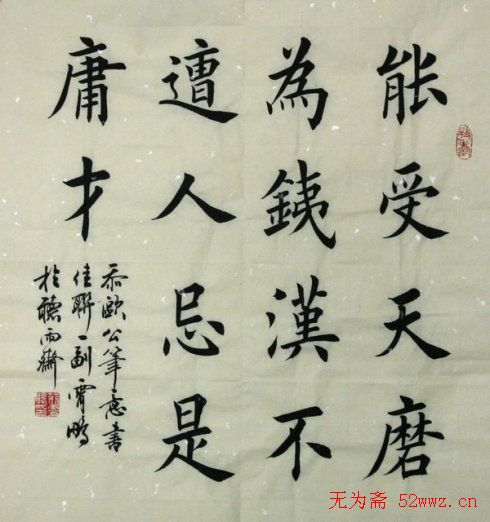 能受天磨
為銕漢不
遭人忌是
庸才
忝歐公筆意書
佳聯一副霄鵬
於聽雨齋
无为斋 52wwz.cn